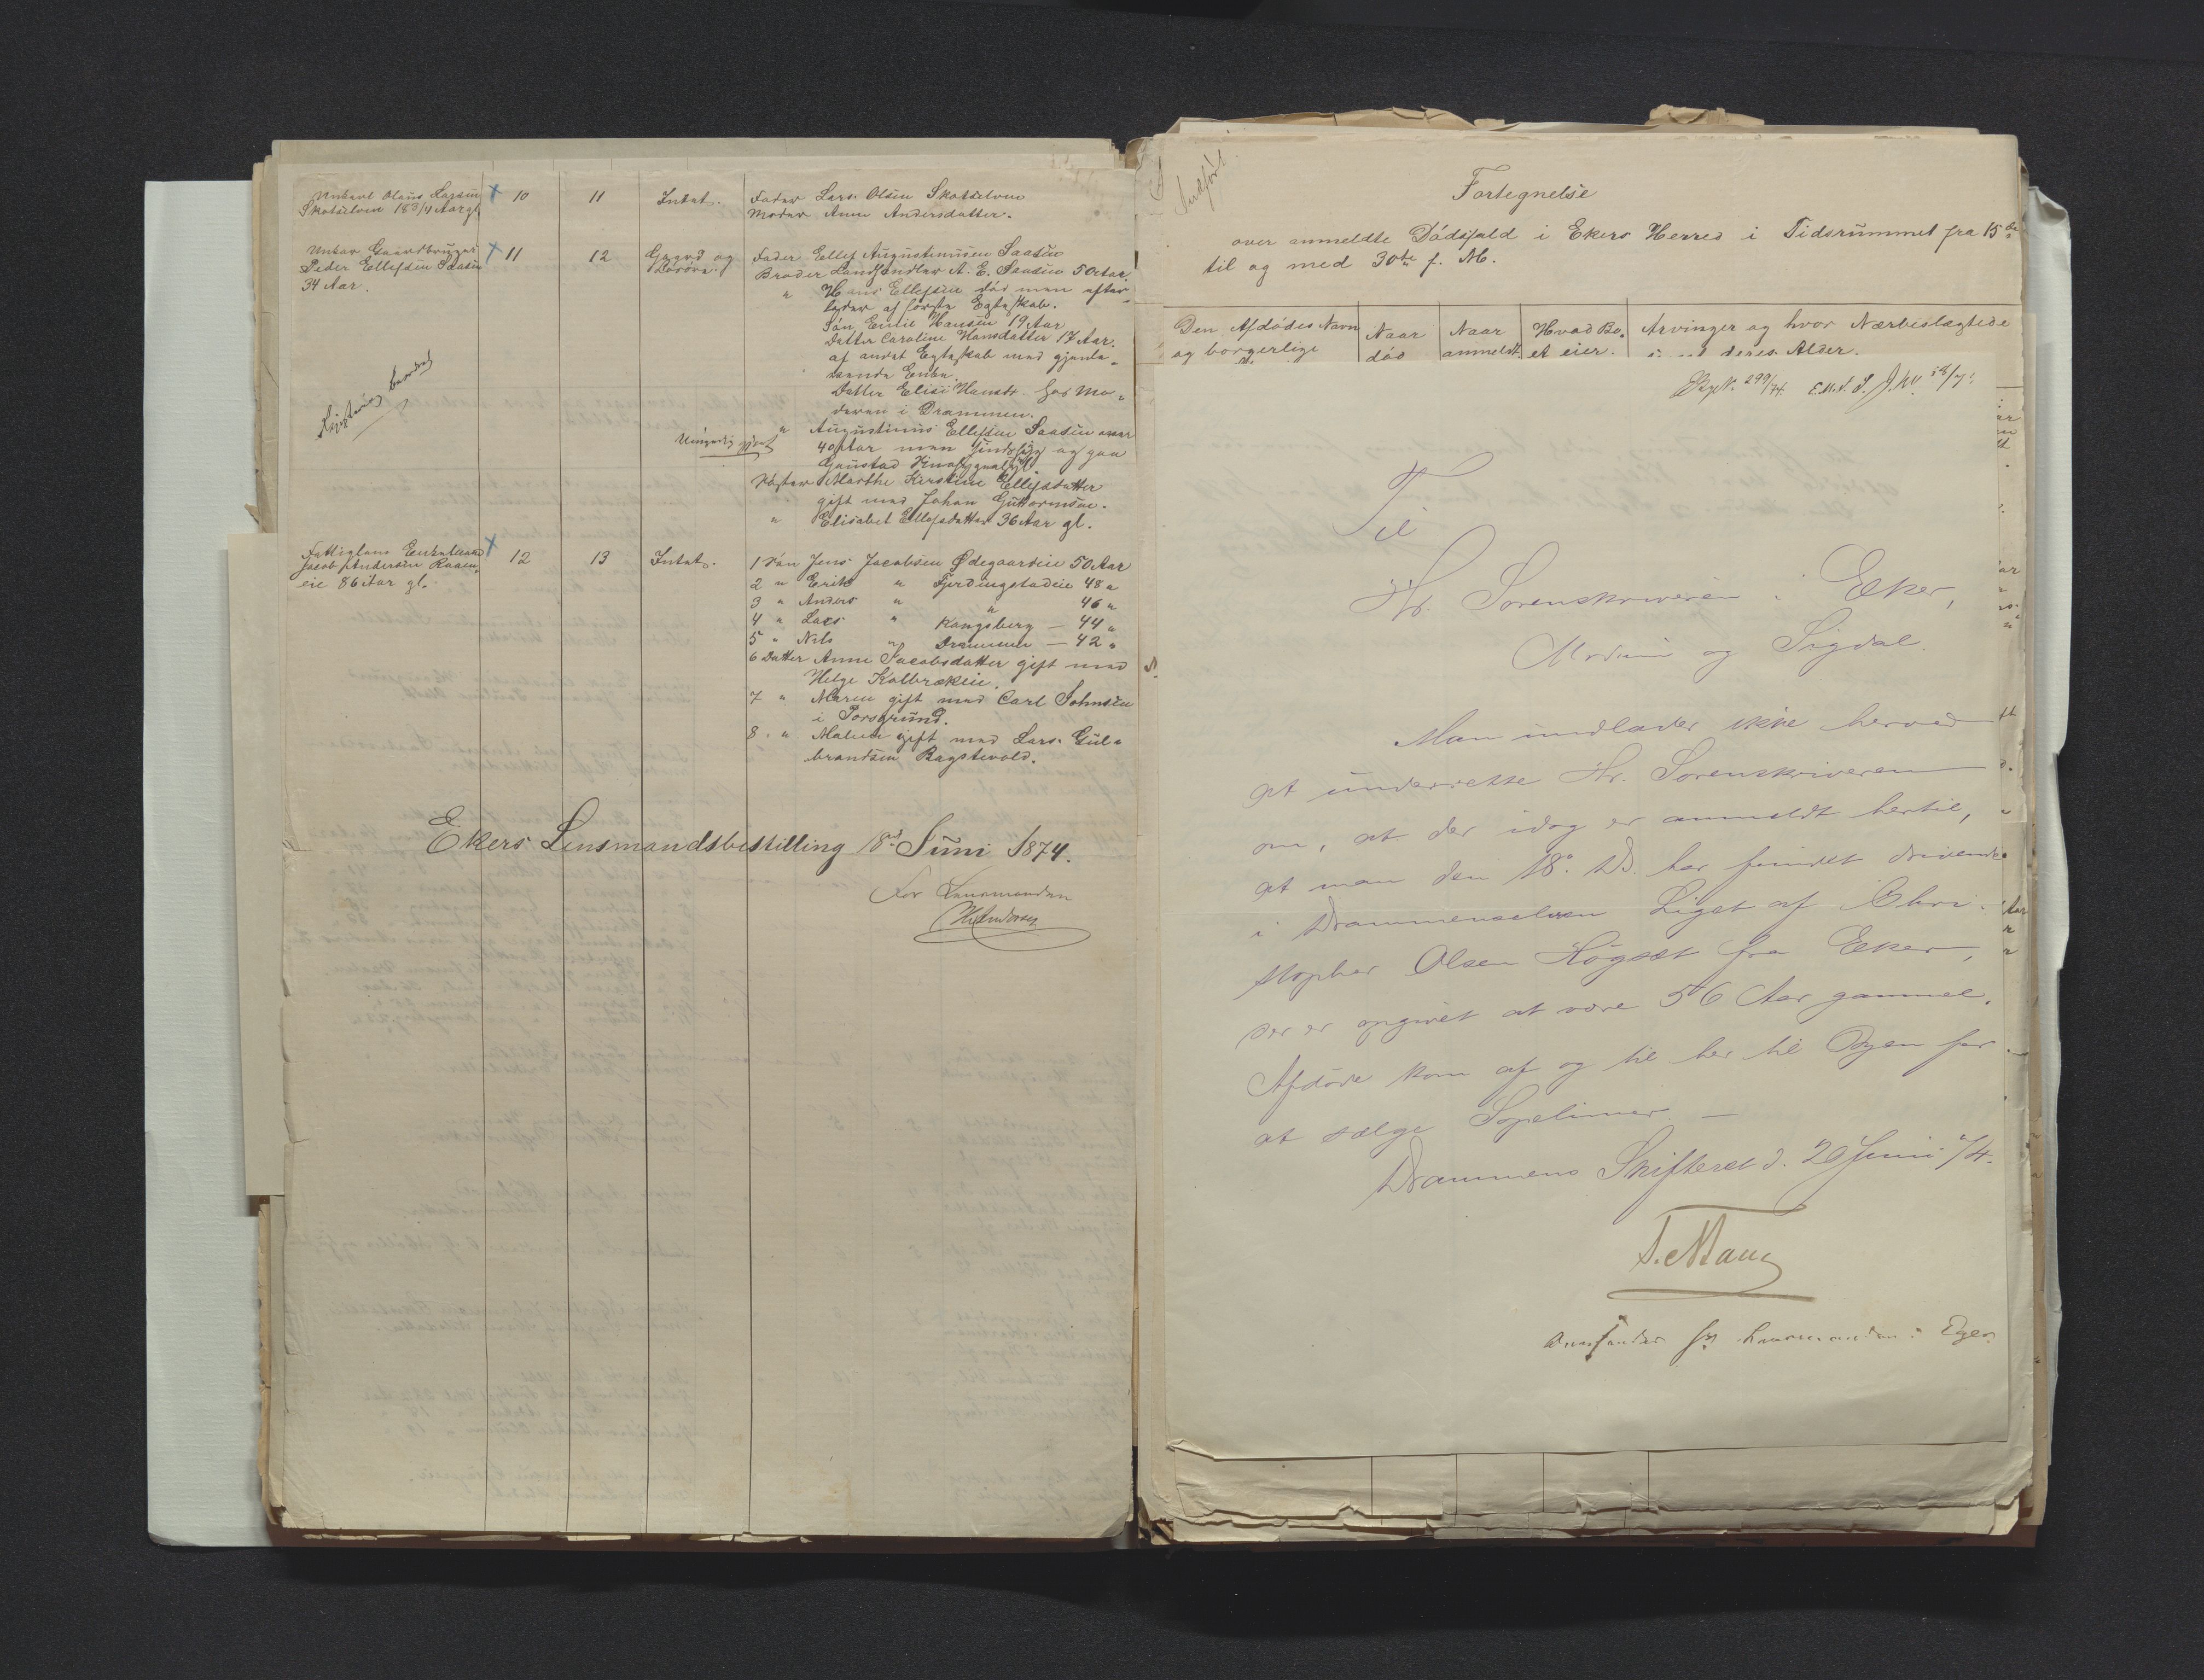 Unkarl Olaus Larsen
Skotselven 18 3/4 Aar gl.
10
11
Intet.
Fader Lars Olsen Skotselven
Moder Anne Andersdatter.
Unkar Gaardbruger
Peder Ellefsen Saasen
34 Aar.
11
12
Gaard og
Løsøre.
Fader Ellef Augustinusen Saasen
Broder Landhandler A. E. Saasen 50 Aar.
" Hans Ellefsen død men efter-
lader af første Egteskab.
Søn Emil Hansen 19 Aar
Datter Caroline Hansdatter 17 Aar.
af andet Egteskab med gjenle-
vende Enke.
Datter Elise Hansdt. hos Mo-
deren i Drammen.
" Augustinus Ellefsen Saasen
40 Aar men sindssyg og paa
Gaustad Sindssygeasyl.
Umyndig gjort
Søster Marthe Kirstine Ellefsdatter
gift med Johan Guttormsen.
" Elisabet Ellefsdatter 36 Aar gl.
Fattiglem Enkemand
Jacob Andersen Raaen-
eie 86 Aar gl.
12
13
Intet.
1 Søn Jens Jacobsen Ødegaardeie 50 Aar
2 " Erik " Fjerdingstadeie 48 "
3 " Anders " " 46 "
4 " Lars " Kongsberg — 44 "
5 " Nils " Drammen — 42 "
6 Datter Anne Jacobsdatter gift med
Helge Kolbrækeie.
7 " Maren gift med Carl Johnsen
i Porsgrund.
8 " Malene gift med Lars Gul-
brandsen Ragstevold.
Ekers Lensmandsbestilling 18d Juni 1874.
For Lensmanden
H. Andersen
Indført.
Fortegnelse
over anmeldte Dødsfald i Ekers Herred i Tidsrummet fra 15de
til og med 30te f. M.
Den Afdødes Navn
og borgerlige
Naar
død
Naar
anmeldt
Hvad Bo-
et eier.
Arvinger og hvor Nærbeslægtede
deres Alder.
299/74.
Til
Hr. Sorenskriveren i Eker,
Modum og Sigdal.
Man undlader ikke herved
at underrette Hr. Sorenskriveren
om, at der idag er anmeldt hertil,
at man den 18de ds. har fundet drivende
i Drammenselven Liget af Chri-
stopher Olsen Høgset fra Eker,
der er opgivet at være 56 Aar gammel.
Afdøde kom af og til her til Byen for
at sælge Sopelimer. —
Drammens Skifteret d. 20 Juni 74.
Oversendes Hr. Lensmanden i Eger